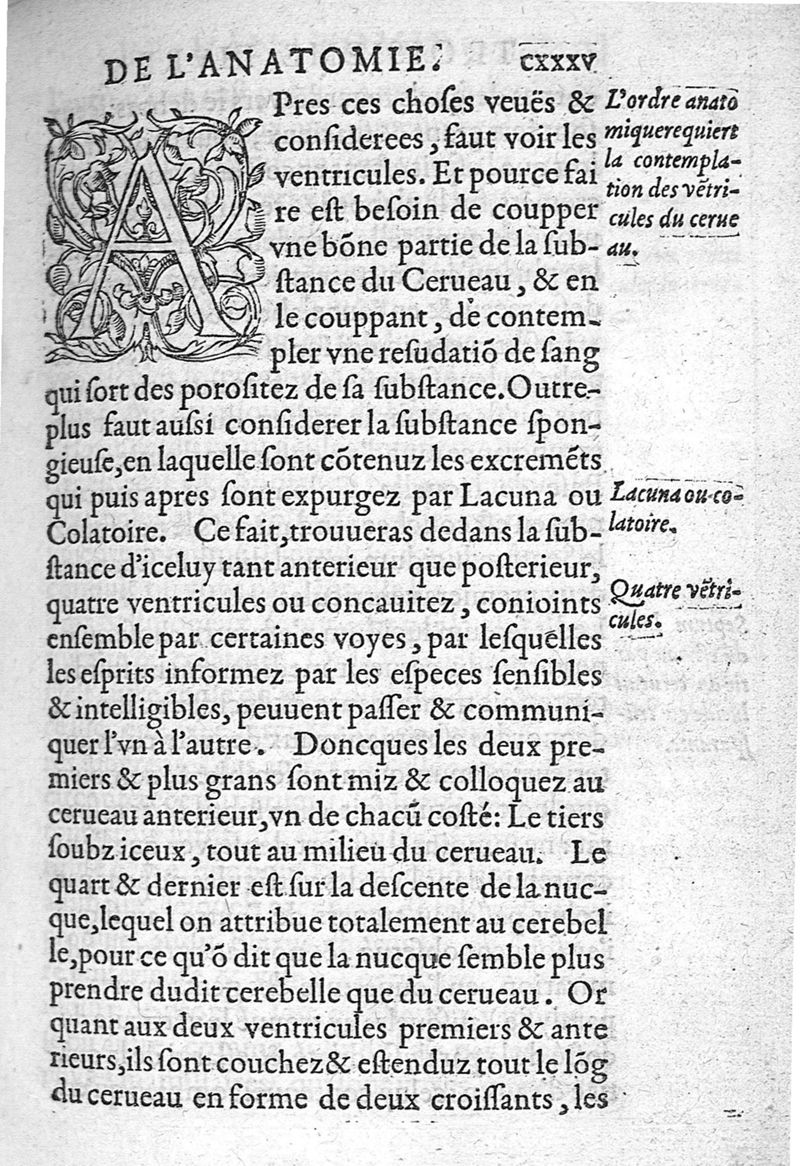 DE L'ANATOMIE. CXXXV
APres ces choſes veuës &
conſiderees, faut voir les
ventricules. Et pource fai
re eſt beſoin de coupper
vne bõne partie de la ſub-
ſtance du Cerueau, & en
le couppant, de contem-
pler vne reſudatiõ de ſang
qui ſort des poroſitez de ſa ſubſtance. Outre-
plus faut auſsi conſiderer la ſubſtance ſpon-
gieuſe, en laquelle ſont cõtenuz les excremẽts
qui puis apres ſont expurgez par Lacuna ou
Colatoire. Ce fait, trouueras dedans la ſub-
ſtance d'iceluy tant anterieur que poſterieur,
quatre ventricules ou concauitez, conioints
enſemble par certaines voyes, par leſquelles
les eſprits informez par les eſpeces ſenſibles
& intelligibles, peuuent paſſer & communi-
quer l'vn à l'autre. Doncques les deux pre-
miers & plus grans ſont miz & colloquez au
cerueau anterieur, vn de chacũ coſté: Le tiers
ſoubz iceux, tout au milieu du cerueau. Le
quart & dernier eſt ſur la deſcente de la nuc-
que, lequel on attribue totalement au cerebel
le, pour ce qu'õ dit que la nucque ſemble plus
prendre dudit cerebelle que du cerueau. Or
quant aux deux ventricules premiers & ante
rieurs, ils ſont couchez & eſtenduz tout le lõg
du cerueau en forme de deux croiſſants, les
L'ordre anato
mique requiert
la contempla-
tion des vẽtri-
cules du cerue
au.
Lacuna ou co-
latoire.
Quatre vẽtri-
cules.